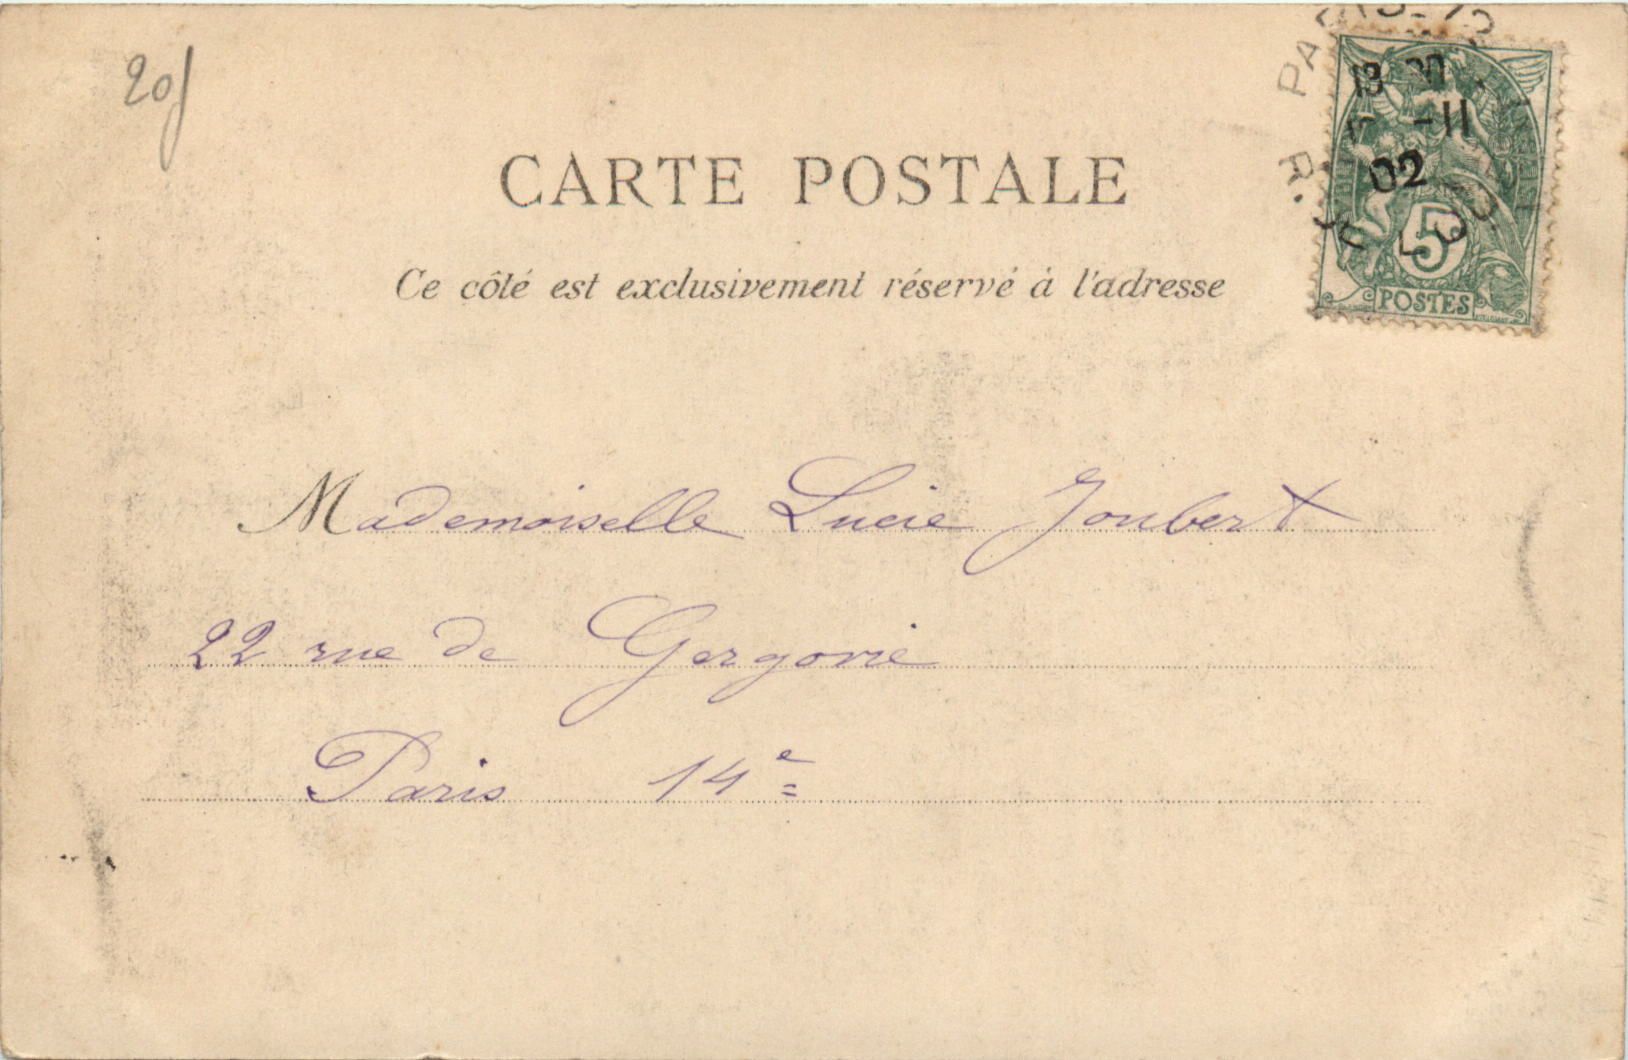 20f
CARTE POSTALE
Ce côté est exclusivement réservé à l'adresse
PARIS
-11
02
5
POSTES
Mademoiselle Lucie Joubert
22 rue de Gergovie
Paris 14e